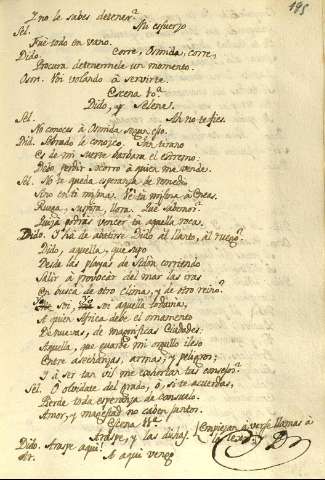 195
Y no le sabes detener?
Sel. Mi esfuerzo
Fué todo en vano.
Dido. Corre, Osmida, corre,
Procura detenermele un momento.
Osm. Voi volando à servirte.
Escena 10ª
Dido, y Selene.
Sel. Ah no te fies.
No conoces à Osmida
Did. Sobrado le conozco. Un tirano
Es de mi suerte barbara el estremo.
Debo pedir socorro à quien me vende.
Sel. No te queda esperanza de remedio
Sino en ti misma. Vé tu misma à Eneas.
Ruega, suspira, llora. Que sabemos
Quizá podrás vencer tu aquella roca.
Dido. Y há de abatirse Dido al llanto, al ruego?
Dido, aquella, que supo
Desde las playas de Sidon corriendo
Salir à provocar del mar las iras
En busca de otro clima, y de otro reino?
Yo soi, soi aquella todavia,
A quien Africa debe el ornamento
De nuevas, de magnificas Ciudades.
Aquella, que guardó mi orgullo ileso
Entre asechanzas, armas, y peligros;
Y à ser tan vil me exhortan tus consejos?
Sel. O olvidate del grado, ò, si te acuerdas,
Pierde toda esperanza de consuelo.
Amor, y magestad no caben juntos.
Escena 11ª
Araspe, y las dichas. (Empiezan à verse llamas à lo lexos)
Dido. Araspe aqui!
Ar. A aqui vengo